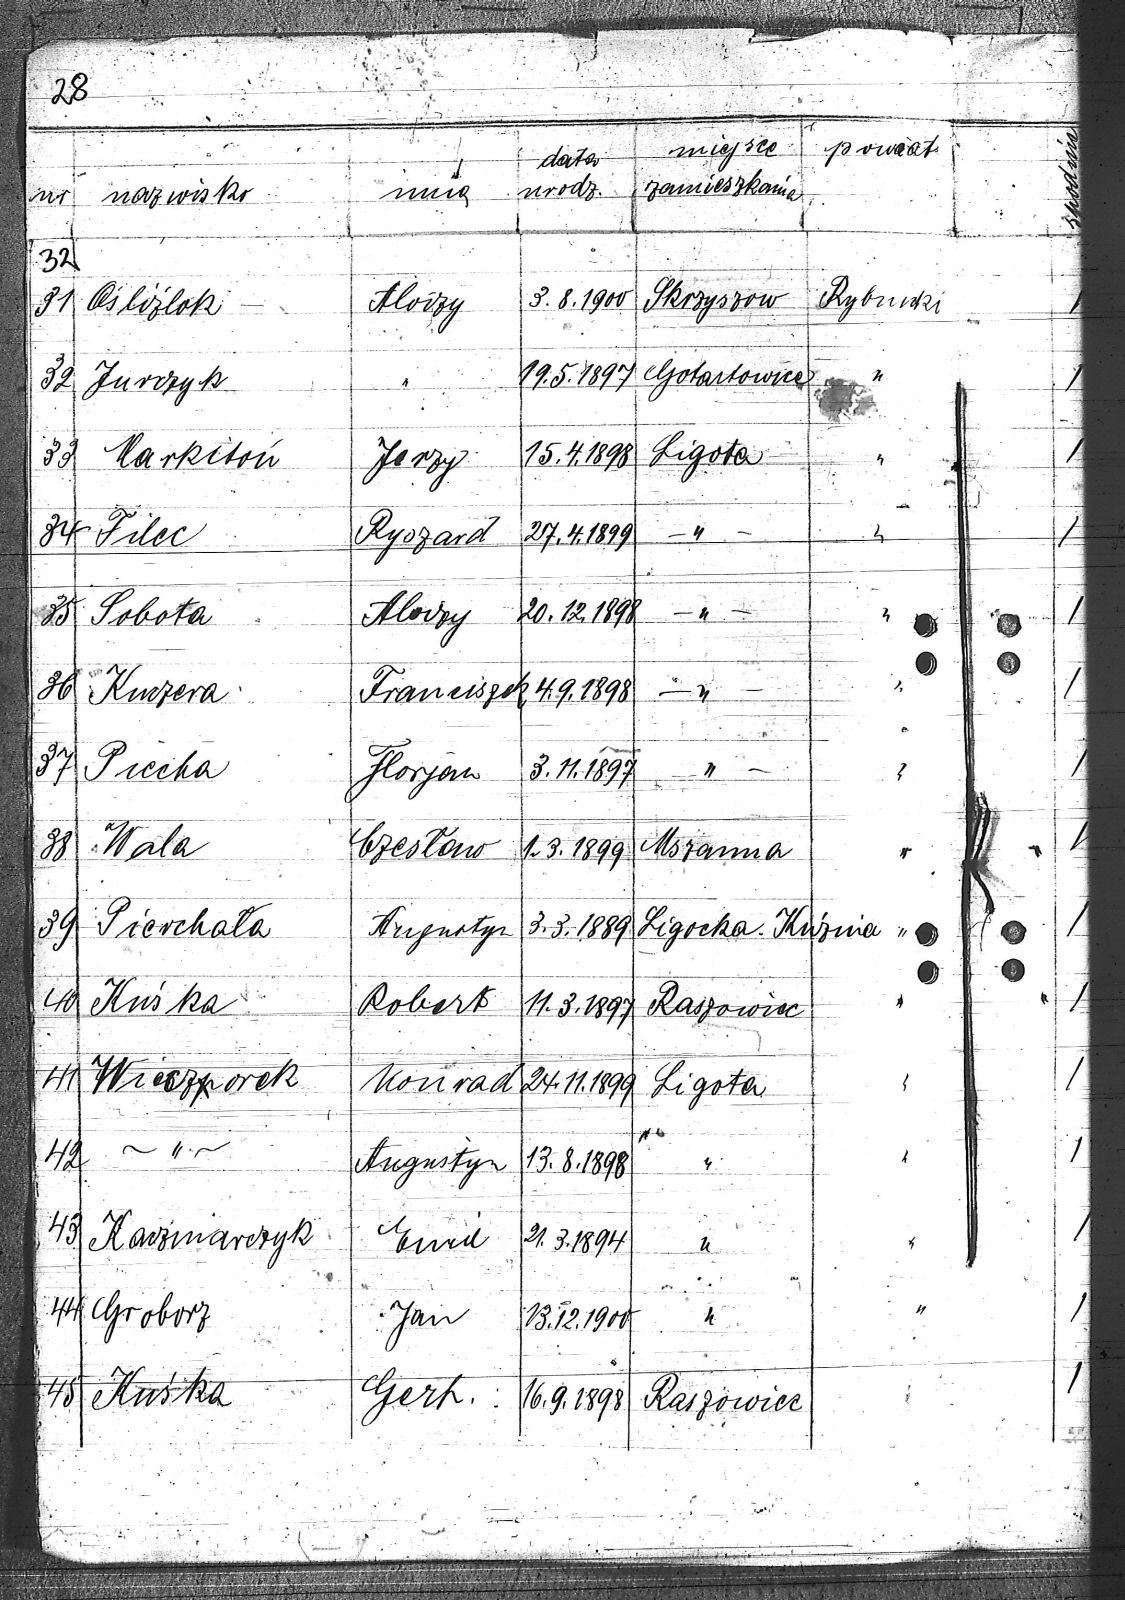 28
nr nazwisko imię data urodz. miejsce zamieszkania powiat spodnia
32
31 Oślizlok Alojzy 3.8.1900 Skrzyszów Rybnicki 1
32 Jurczyk " 19.5.1897 Gotartowice " 1
33 Markiton Jerzy 15.4.1898 Ligota " 1
34 Filec Ryszard 27.4.1899 - " - " 1
35 Sobota Alojzy 20.12.1898 - " - " 1
36 Kuczera Franciszek 4.9.1898 - " - " 1
37 Piecha Florjan 3.11.1897 " - " 1
38 Wala Czesław 1.3.1899 Mszanna " " 1
39 Pierchała Augustyn 3.3.1889 Ligocka Kuźnia " 1
40 Kuśka Robert 11.3.1897 Raszowiec " " 1
41 Wieczorek Konrad 24.11.1899 Ligota " 1
42 ~ " ~ Augustyn 13.8.1898 " " 1
43 Kaczmarczyk Emil 21.3.1894 " " 1
44 Groborz Jan 13.12.1900 " " 1
45 Kuśka Gerh. 16.9.1898 Raszowiec " 1